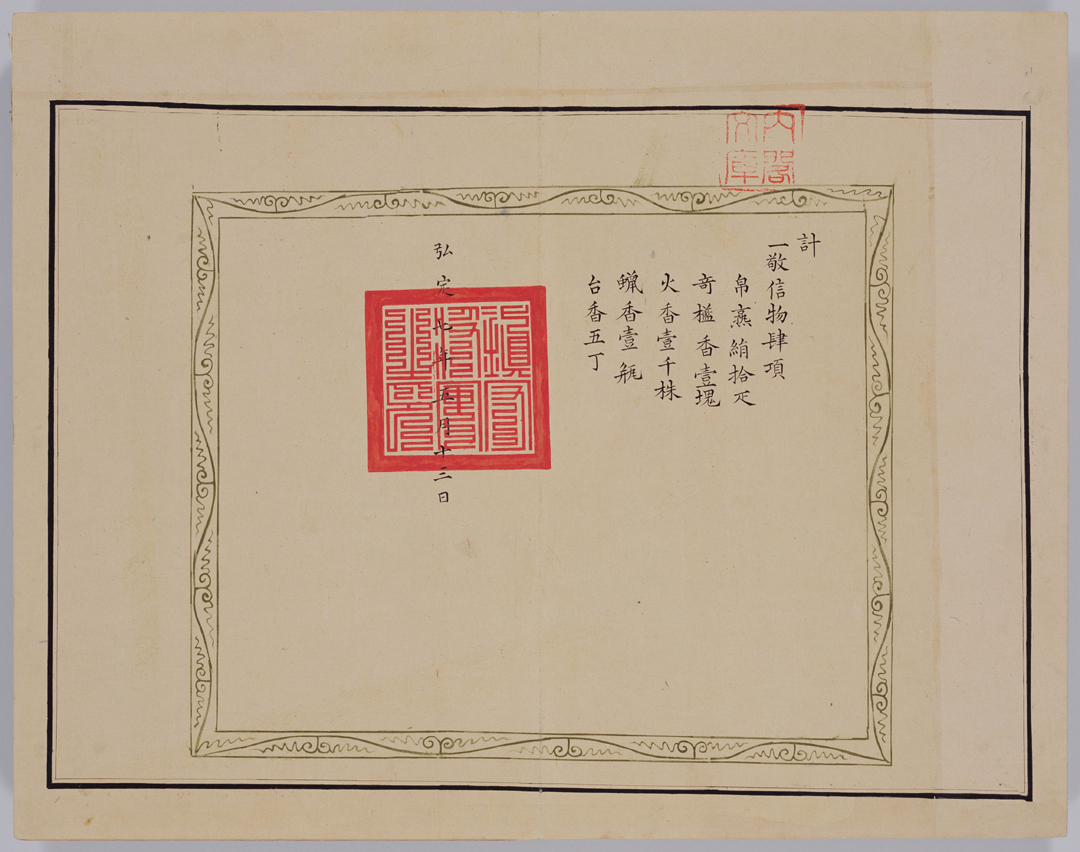 內閣
文庫
計
一敬信物肆項
帛燕絹拾疋
竒檻香壹塊
火香壹千株
蠟香壹瓶
台香五丁
弘定七年五月十三日